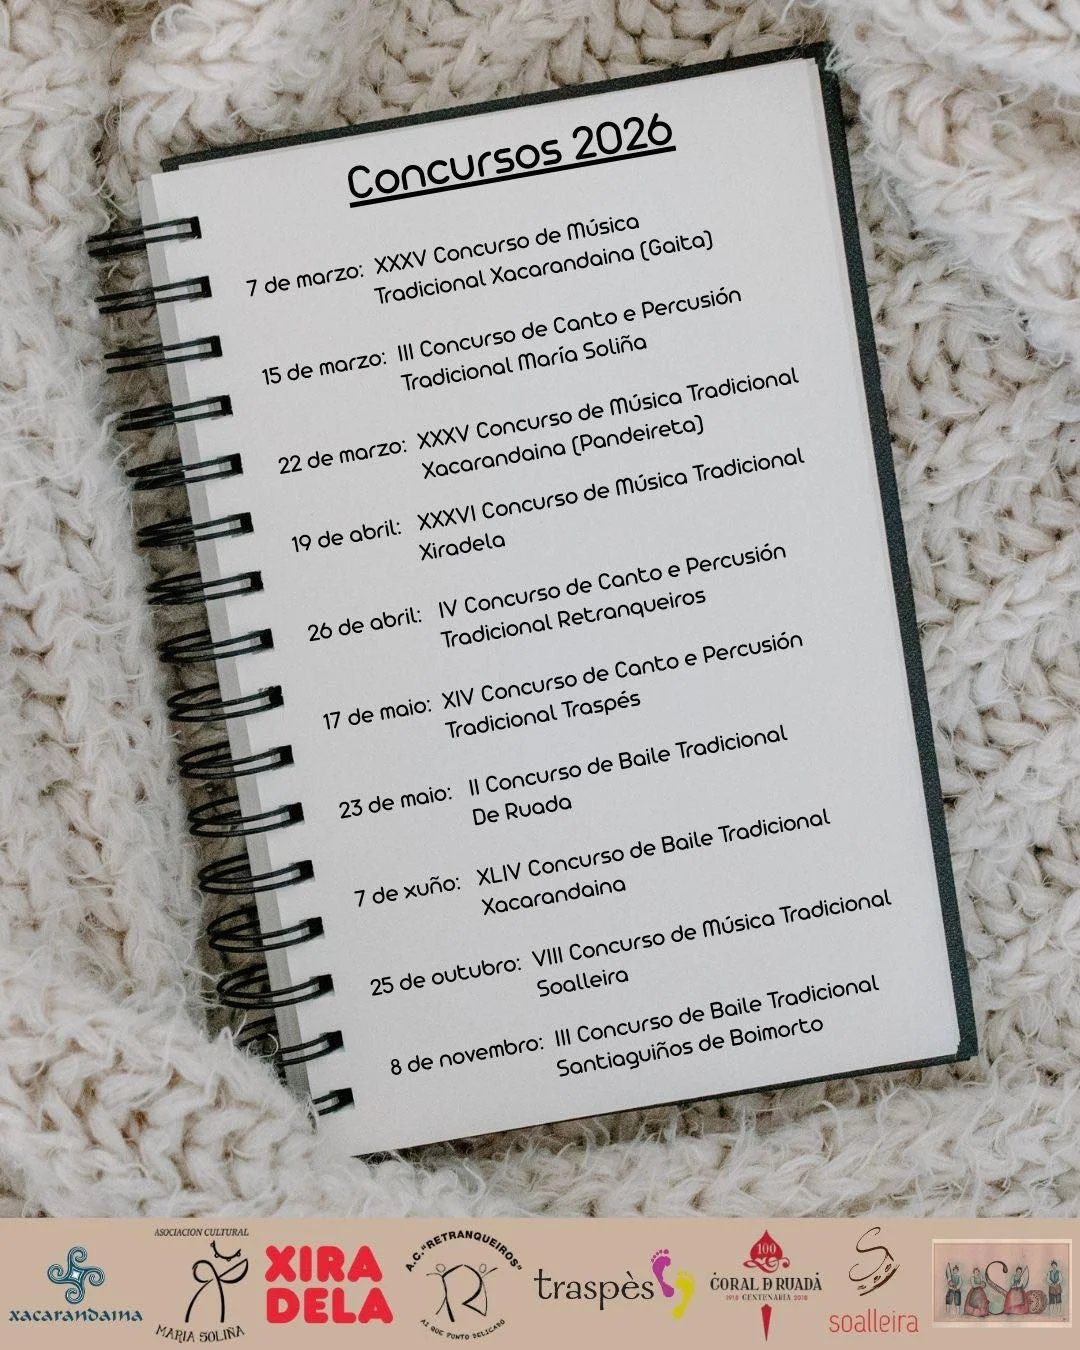 Concursos 2026
7 de marzo: XXXV Concurso de Música
Tradicional Xacarandaina (Gaita)
15 de marzo: III Concurso de Canto e Percusión
Tradicional María Soliña
22 de marzo: XXXV Concurso de Música Tradicional
Xacarandaina (Pandeireta)
19 de abril: XXXVI Concurso de Música Tradicional
Xiradela
26 de abril: IV Concurso de Canto e Percusión
Tradicional Retranqueiros
17 de maio: XIV Concurso de Canto e Percusión
Tradicional Traspés
23 de maio: II Concurso de Baile Tradicional
De Ruada
7 de xuño: XLIV Concurso de Baile Tradicional
Xacarandaina
25 de outubro: VIII Concurso de Música Tradicional
Soalleira
8 de novembro: III Concurso de Baile Tradicional
Santiaguiños de Boimorto
xacarandaina
ASOCIACIÓN CULTURAL
MARIA SOLIÑA
XIRA
DELA
A.C. "RETRANQUEIROS"
AI QUE PUNTO DELICADO
traspès
100
CORAL D RUADA
1918 CENTENARIA 2018
soalleira